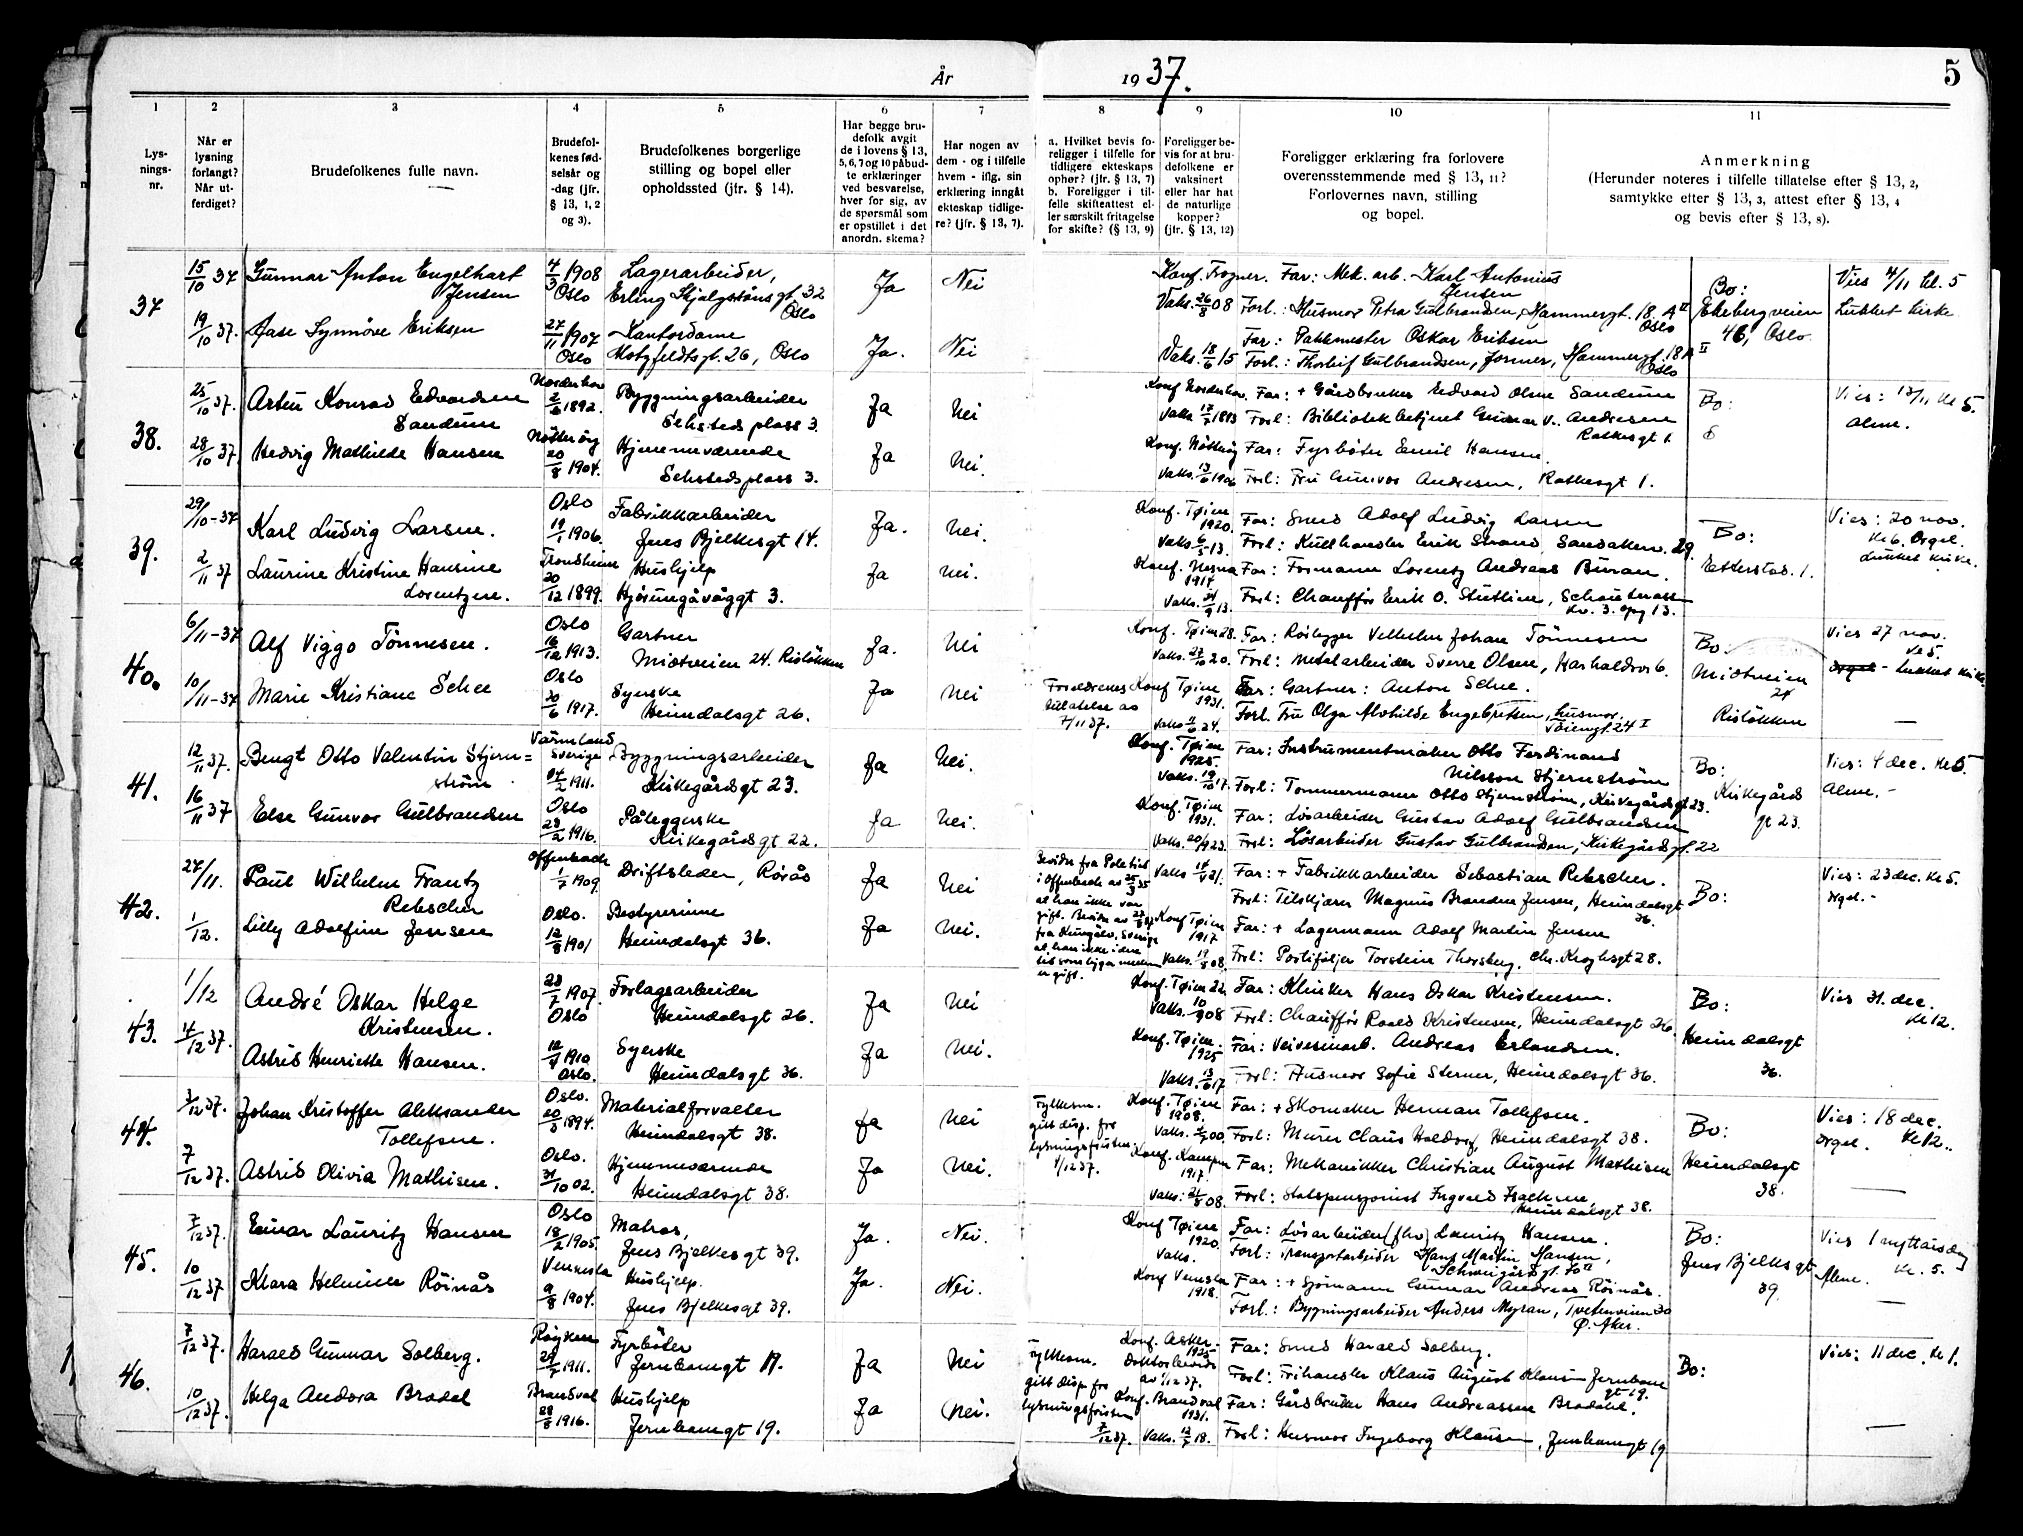 År
1937.
5
1
2
3
4
5
6
7
8
9
10
11
Lys-
nings-
nr.
Når er
lysning
forlangt?
Når ut-
ferdiget?
Brudefolkenes fulle navn.
Brudefol-
kenes fød-
selsår og
-dag (jfr.
§ 13, 1, 2
og 3).
Brudefolkenes borgerlige
stilling og bopel eller
opholdssted (jfr. § 14).
Har begge bru-
defolk avgit
de i lovens § 13,
5, 6, 7 og 10 påbud-
te erklæringer
ved besvarelse,
hver for sig, av
de spørsmål som
er opstillet i det
anordn. skema?
Har nogen av
dem - og i tilfelle
hvem - iflg. sin
erklæring inngått
ekteskap tidlige-
re? (jfr. § 13, 7).
a. Hvilket bevis fo-
religger i tilfelle for
tidligere ekteskaps
ophør? (jfr. § 13, 7)
b. Foreligger i til-
felle skifteattest el-
ler særskilt fritagelse
for skifte? (§ 13, 9)
Foreligger be-
vis for at bru-
defolkene er
vaksinert
eller har hat
de naturlige
kopper?
(jfr. § 13, 12)
Foreligger erklæring fra forlovere
overensstemmende med § 13, 11?
Forlovernes navn, stilling
og bopel.
Anmerkning
(Herunder noteres i tilfelle tillatelse efter § 13, 2,
samtykke efter § 13, 3, attest efter § 13, 4
og bevis efter § 13, 8).
37
15/10 37 Gunnar Anton Engelhart Jensen 4/3 1908 Oslo Lagerarbeider, Erling Skjalgssøns gt. 32 Oslo Ja Nei
Konf. Frogner. Vaks. 26/8 08 Far: Mek. arb. Karl Antonius Jensen
Forl: Husmor Petra Gulbrandsen, Hammergt. 18 A II Oslo
Bo: Ekebergveien 46, Oslo
Vies 4/11 kl. 5 Lukket kirke
19/10 37. Aase Synnøve Eriksen 27/11 1907 Oslo Kontordame Motzfeldtsgt. 26, Oslo Ja. Nei
Vaks. 18/6 15 Far: Pakkmester Oskar Eriksen
Forl: Thorleif Gulbrandsen, former, Hammergt. 18 A II Oslo
38.
25/10 37. Artur Konrad Edvardsen Sandum Norderhov 2/6 1892. Bygningsarbeider Sehsteds plass 3. Ja Nei
Konf Norderhov Vaks 17/7 1893 Far: + Gårdbruker Edvard Olsen Sandum
Forl: Bibliotekbetjent Gunnar V. Andresen Ratkesgt 1.
Bo:
Vies: 13/11 Kl 5. Alene.
28/10 37. Hedvig Mathilde Hansen Nøtterøy 20/8 1904. Hjemmeværende Sehsteds plass 3. Ja Nei.
Konf. Nøtterøy Vaks. 13/6 1906 Far: Fyrbøter Emil Hansen.
Forl: Fru Gunvor Andresen, Ratkesgt 1.
39.
29/10-37 Karl Ludvig Larsen. Oslo 19/1 1906. Fabrikkarbeider Jens Bjelkesgt 14. Ja. Nei.
Konf. Tøien 1920. Vaks. 6/5 13. Far: Smed Adolf Ludvig Larsen
Forl: Kullhandler Erik Strand, Sandaker. 29.
Bo: Etterstad. 1.
Vies: 20 nov. Kl 6. Orgel. Lukket kirke.
2/11 37 Laurine Kristine Hansine Lorentzen. Trondheim 20/12 1899. Hushjelp Hjørungavåggt 3. Ja Nei.
Konf. Nesna 1914 Vaks. 21/9 13. Far: Formann Lorentz Andreas Buran.
Forl: Chauffør Erik O. Stutlien,
40.
6/11-37 Alf Viggo Tønnesen. Oslo 16/12 1913. Gartner Midtveien 24. Risløkken Ja. Nei
Konf. Tøien 28. Vaks. 27/10 20. Far: Rørlegger Vilhelm Johan Tønnesen
Forl: Metalarbeider Sverre Olsen,
Bo. Midtveien 24 Risløkken
Vies 27 nov. Kl 5. Lukket Kirke.
10/11-37 Marie Kristiane Schee Oslo 30/6 1917. Syerske Heimdalsgt 26. Ja Nei
Foreldrenes tillatelse av 7/11 37. Konf Tøien 1931. Vaks 11/6 24. Far: Gartner: Anton Schee.
Forl. Fru Olga Mathilde Engebretsen, husmor, Tøiengt. 24 I
41.
12/11 37. Bengt Otto Valentin Stjern=strøm Värmland Sverige 14/2 1911. Bygningsarbeider Kirkegårdsgt 23. Ja Nei.
Konf. Tøien 1925. Vaks. 19/10 17. Far: Instrumentmaker Otto Ferdinand Nilsson Stjernstrøm
Forl: Tømmermann Otto Stjernstrøm, Kirkegårdsgt. 23.
Bo: Kirkegårdsgt 23.
Vies: 4 dec. Kl 5. Alene.-
16/11 37 Else Gunvor Gulbrandsen Oslo 28/2 1916. Påleggerske Kirkegårdsgt 22. Ja Nei.
Konf. Tøien 1931. Vaks. 20/9 23. Far: Løsarbeider Gustav Adolf Gulbrandsen
Forl: Løsarbeider Gustav Gulbrandsen, Kirkegårdsgt. 22
42.
27/11. Paul Wilhelm Frantz Rebscher Offenbach 1/7 1909. Driftsleder, Rørås Ja Nei
Vaks 14/5 21. Far: + Fabrikkarbeider Sebastian Rebscher.
Forl: Tilskjærer Magnus Brander Jensen, Heimdalsgt 36.
Bo:
Vies: 23 dec. Kl 5. Orgel.-
1/12. Lilly Adolfine Jensen Oslo. 12/8 1901 Bestyrerinne Heimdalsgt 36. Ja Nei.
Konf Tøien 1917 Vaks. 19/5 08. Far: + Lagermann Adolf Martin Jensen
Forl: Portiføljer Torstein Thorsberg, Chr. Kroghsgt 28.
43.
1/12 André Oskar Helge Kristensen. 23/7 1907. Oslo Forlagsarbeider Heimdalsgt 26. Ja Nei
Konf. Tøien 22. Vaks. 10/9 08 Far: Klinker Hans Oskar Kristensen.
Forl: Chauffør Roald Kristensen, Heimdalsgt 26.
Bo: Heimdalsgt 36.
Vies 31. dec. Kl 12.
4/12 37. Astrid Henriette Hansen. 12/4 1910 Oslo. Syerske Heimdalsgt 36. Ja Nei.
Konf. Tøien. 1925 Vaks. 13/6 17 Far: Veivesenarb. Andreas Erlandsen.
Forl: Husmor Sofie Sterner, Heimdalsgt 36.
44.
3/12 37. Johan Kristoffer Aleksander Tollefsen. Oslo. 20/3 1894. Materialforvalter Heimdalsgt 38. Ja Nei
Fylkesm. gitt disp. fra lysningsfristen. 4/12 37. Konf. Tøien 1908. Far: + Skomaker Herman Tollefsen.
Forl: Murer Claus Holdorf, Heimdalsgt 38.
Bo: Heimdalsgt 38.
Vies: 18 dec. Orgel. Kl 12.
7/12 37. Astrid Olivia Mathisen. Oslo. 31/10 02. Hjemmeværende Heimdalsgt 38. Ja Nei.
Konf. Kampen 1917. Vaks: 21/8 08. Far: Mekanikker Christian August Mathisen
Forl: Statspensjonist Ingvald Isachsen, Heimdalsgt 38.
45.
7/12 37. Einar Lauritz Hansen Oslo 18/2 1905. Matros, Jens Bjelkesgt 39. Ja. Nei.
Konf Tøien 1920. Vaks. Far: Løsarbeider (fhv) Lauritz Hansen.
Forl: Transportarbeider Hans Martin Hansen,
Bo: Jens Bjelkesgt 39.
Vies 1 nyttårsdag Kl. 5. Alene.
10/12 37. Klara Helmine Röinås Vennesla 9/8 1904. Hushjelp. Jens Bjelkesgt 39. Ja. Nei.
Konf Vennsla 1918. Far: + Sjømann Gunnar Andreas Röinås.
Forl: Bygningsarbeider Anders Myran, Tvetenveien 30 Ø. Aker.
46.
7/12 37. Harald Gunnar Solberg. Røyken 29/7 1911. Fyrbøter Jernbanegt 19. Ja Nei
Fylkesm. gitt disp fra lysningsfristen 7/12 37. Konf. Asker 1925. Far: Smed Harald Solberg.
Forl: Frihandler Klaus August Klausen Jernbanegt 19.
Bo:
Vies: 11 dec. Kl 1.
10/12 37. Helga Andora Brodal Brandval 28/8 1916. Hushjelp Jernbanegt 19. Ja Nei.
Konf. Brandval 1931. Vaks. 12/7 18. Far: Gårdbruker Hans Andreassen Brodahl.
Forl: Husmor Ingeborg Klausen, Jernbanegt 19